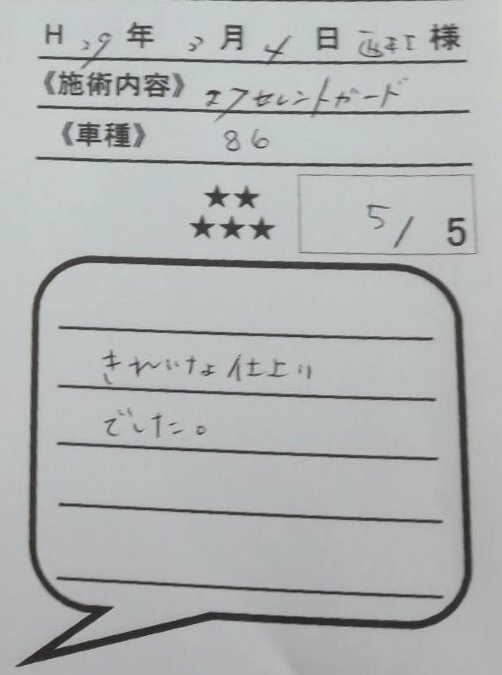 H 29 年 3 月 4 日 様
《施術内容》 エクセレントガード
《車種》 86
★★
★★★
5/5
きれいな仕上り
でした。